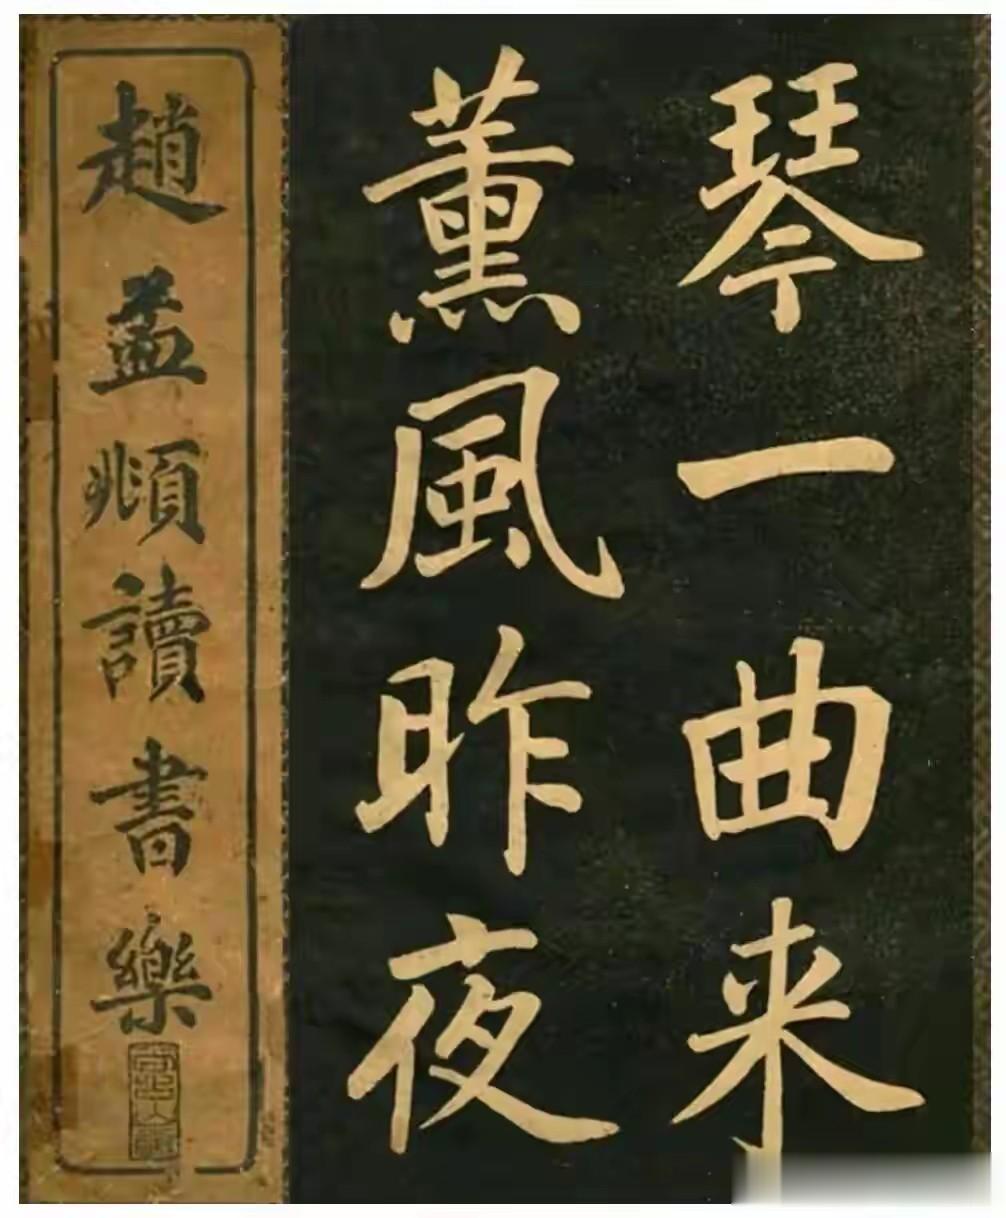 琴一曲来
薰風昨夜
趙孟頫讀書樂